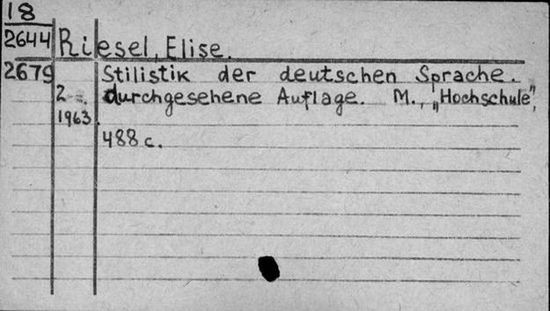 18
2644 Riesel, Elise.
2679 Stilistik der deutschen Sprache.
2 durchgesehene Auflage. M., „Hochschule",
1963.
488 c.